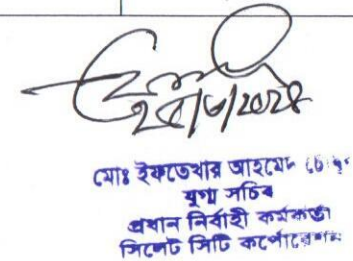 মোঃ ইফতেখার আহমেদ
যুগ্ম সচিব
প্রধান নির্বাহী কর্মকর্তা
সিলেট সিটি কর্পোরেশন